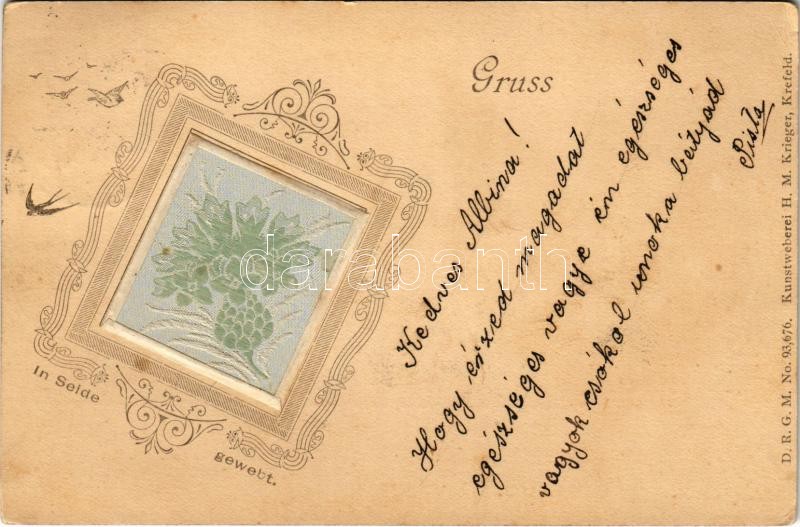 Gruss
Kedves Albina!
Hogy érzed magadat
egészséges vagye én egészséges
vagyok csókol unoka bátyád
Pista
In Seide
gewebt.
D. R. G. M. No. 93,676. Kunstweberei H. M. Krieger, Krefeld.
darabanth